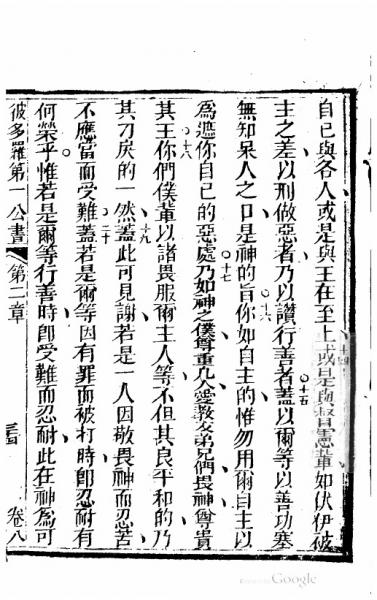 自己與各人或是與王在至上或是與督憲輩如伏伊彼
十四
主之差以刑做惡者乃以讚行善者蓋以爾等以善功塞
十五
無知呆人之口是神的旨你如自主的惟勿用爾自主以
十六
為遮你自己的惡處乃如神之僕尊重凡人愛教友弟兄們畏神尊貴
十七
其王你們僕輩以諸畏服爾主人等不但其良平和的乃
十八
其刁戾的一然蓋此可見謝若是一人因敬畏神而忍苦
十九
不應當而受難蓋若是爾等因有罪而被打時卽忍耐有
二十
何榮乎惟若是爾等行善時卽受難而忍耐此在神為可
彼多羅第一公書 第二章 三 卷八
Google